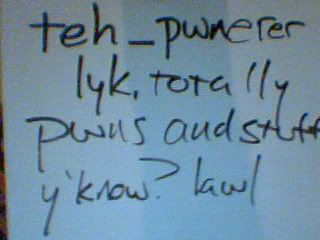 teh_pwnerer
lyk, totally
pwns and stuff
y'know? lawl